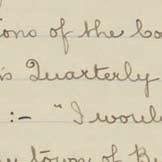 ions of the bo
is Quarterly
:- "I would
town of B